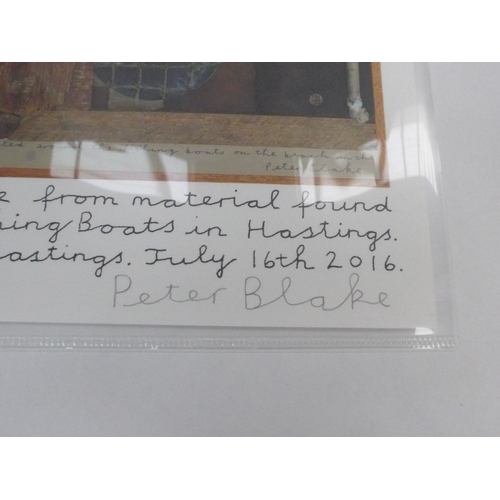 boats on the beach
Peter Blake
from material found
ing Boats in Hastings.
astings. July 16th 2016.
Peter Blake